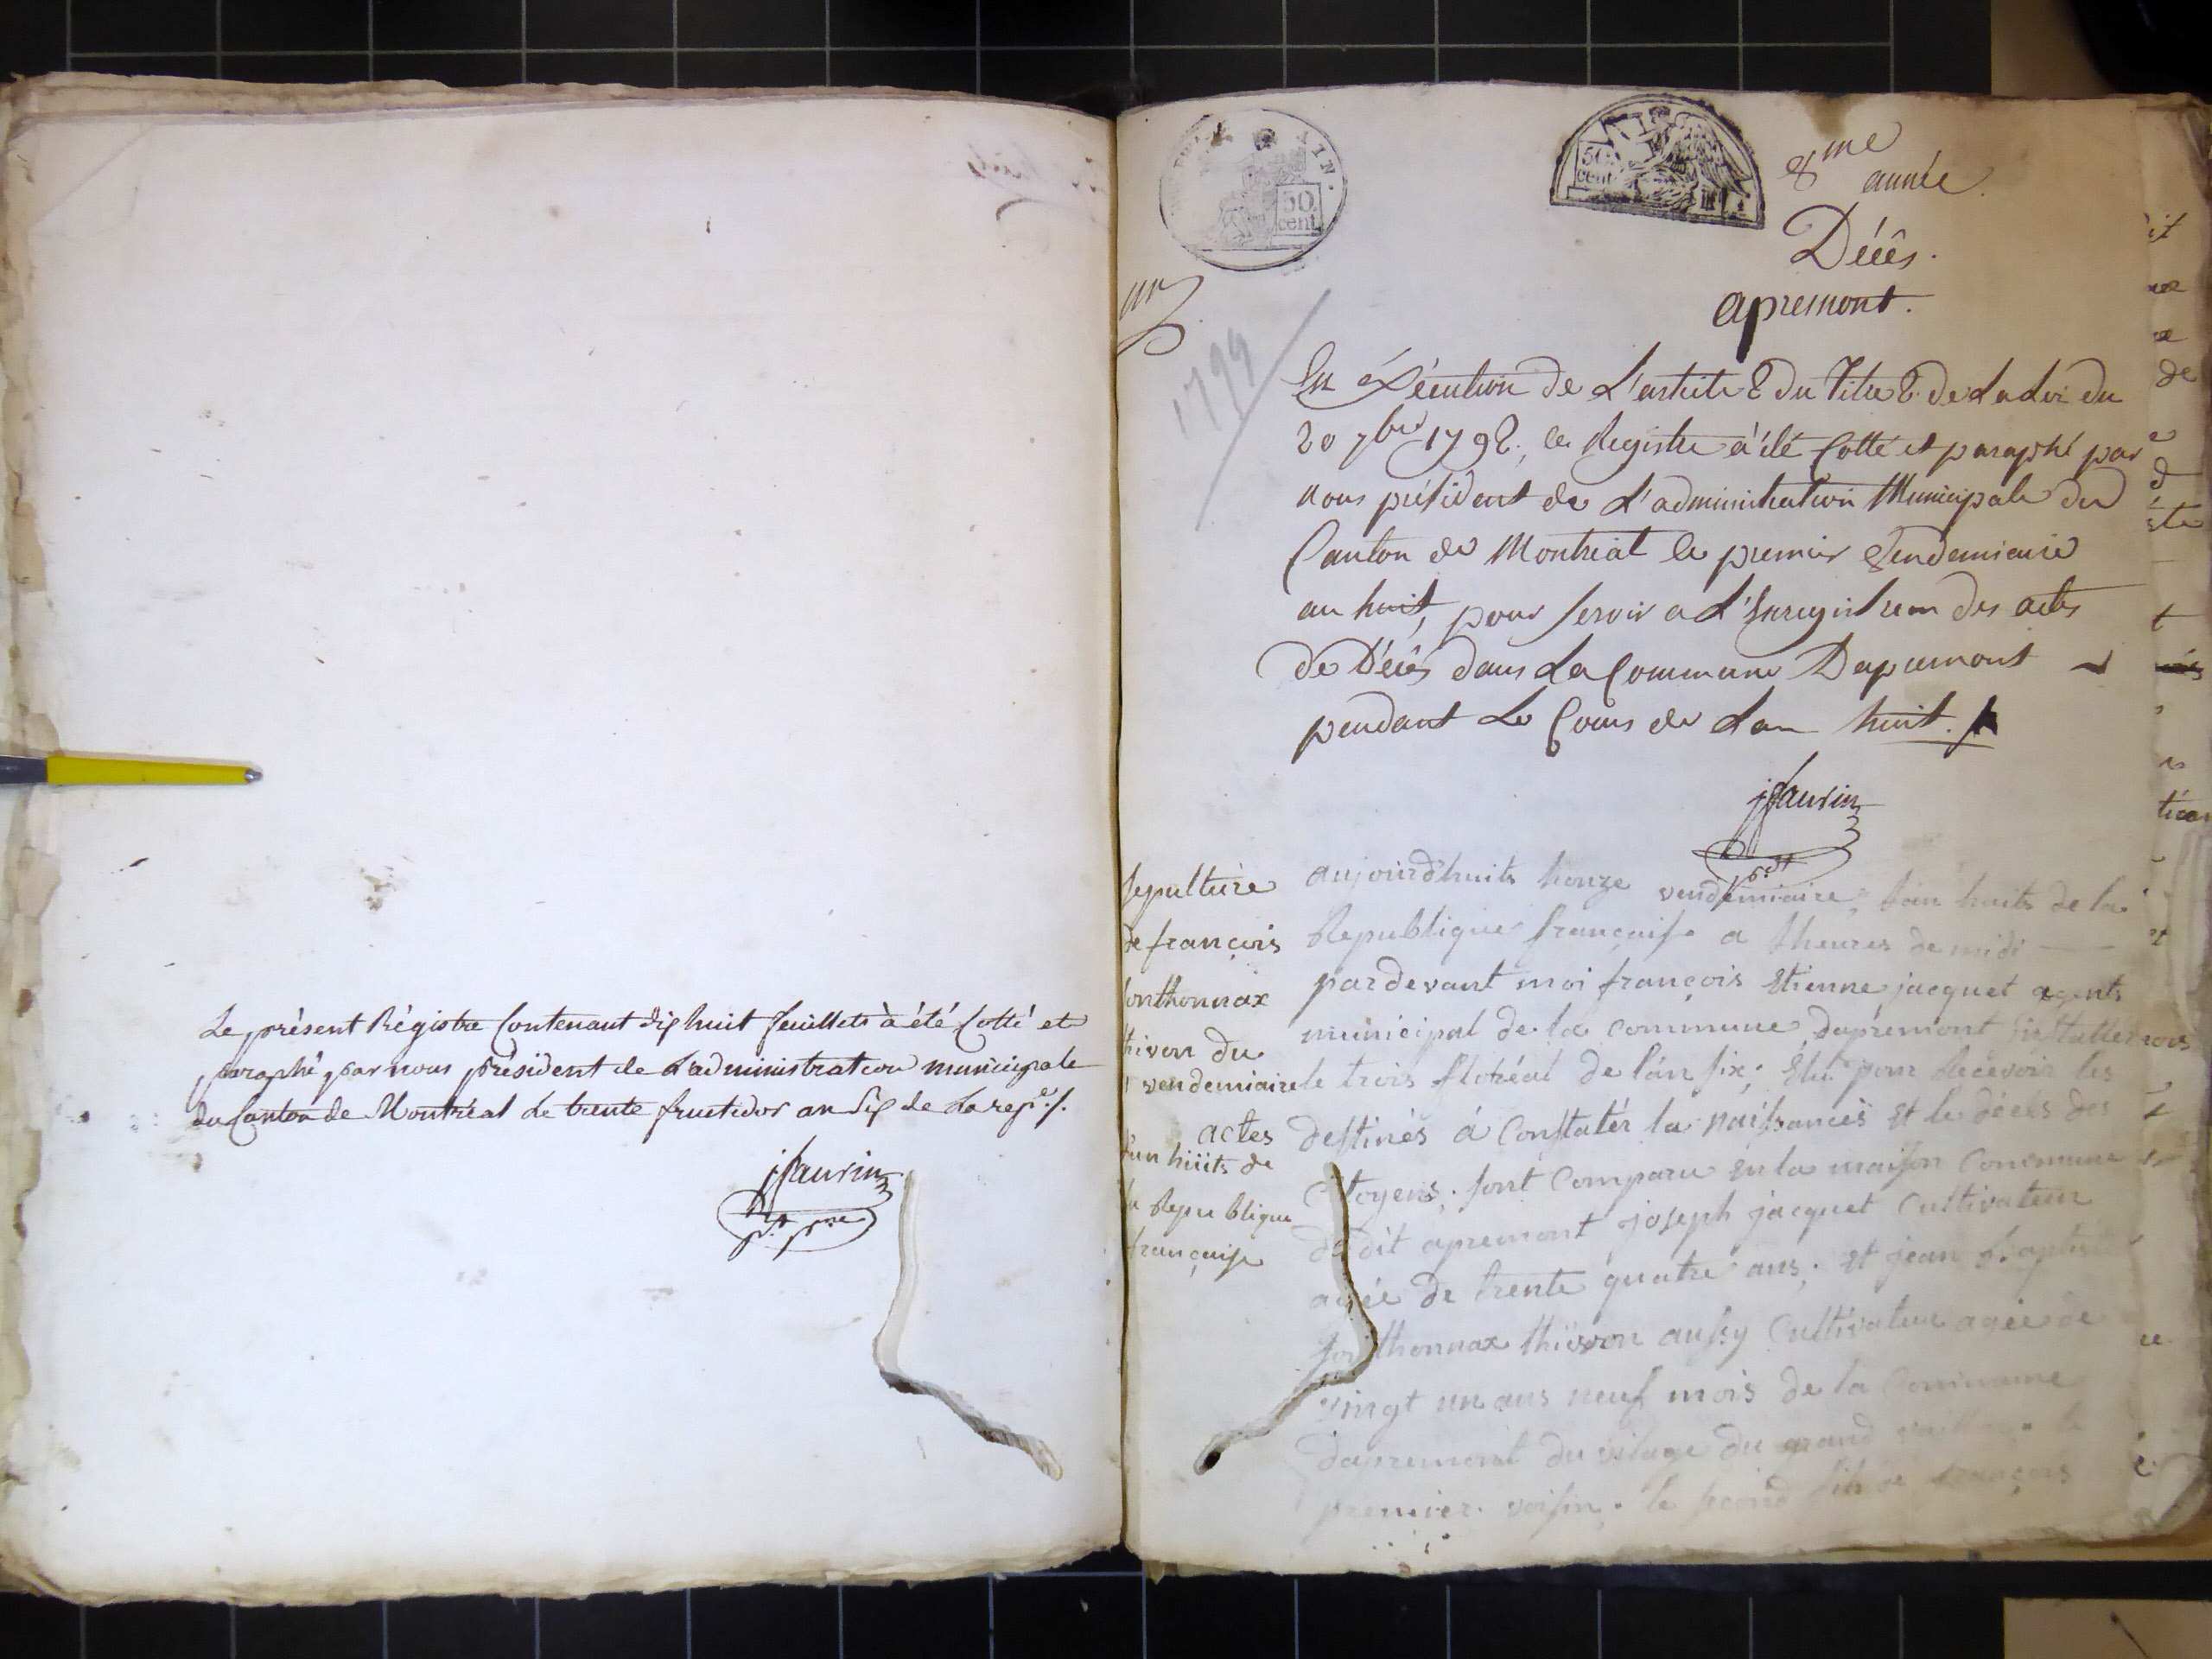 Le présent Régistre Contenant dix huit feuillets à été Cotté et
paraphé par nous président de L'administration municipale
du Canton de Montréal le trente fructidor an Six de La rep.e /.
jSavrin
p.dt
50 cent
50 cent
8me année
Décês.
apremont.
un
1799
En éxécution de L'article 2 du Titre 2. de La Loi du
20 7bre 1792, ce Registre à été Cotté et paraphé par
nous président de L'administration Municipale du
Canton de Montréal le premier Vendemiaire
an huit, pour servir a L'Enregistrem des actes
de Décês dans La Commune Dapremont
pendant Le Cours de Lan huit.
jSavrin
p.dt
sepulture
de françois
sonthonnax
thivon du
vendemiaire
actes
huiits de
la Republique
française
aujourdhuits honze vendemiaire, l'an huits de la
Republique française a heures de midi
pardevant moi françois Etienne jacquet agents
municipal de la commune dapremont
le trois floréal de l'an six; Elu pour Recevoir les
destinés á Constatér la naissances et le décès des
Citoyens. sont Comparu en la maison Commune
dudit apremont joseph jacquet Cultivateur
agée de trente quatre ans, et jean
sonthonnax thivon aussy Cultivateur agée de
vingt un ans neuf mois de la Commune
dapremont du vilage du grand
premier voisin. le second fils de françois